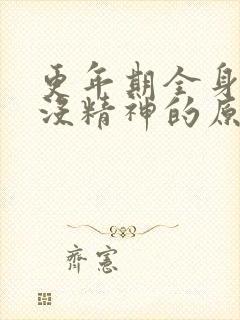 更年期全身
没精神的原
齊憲